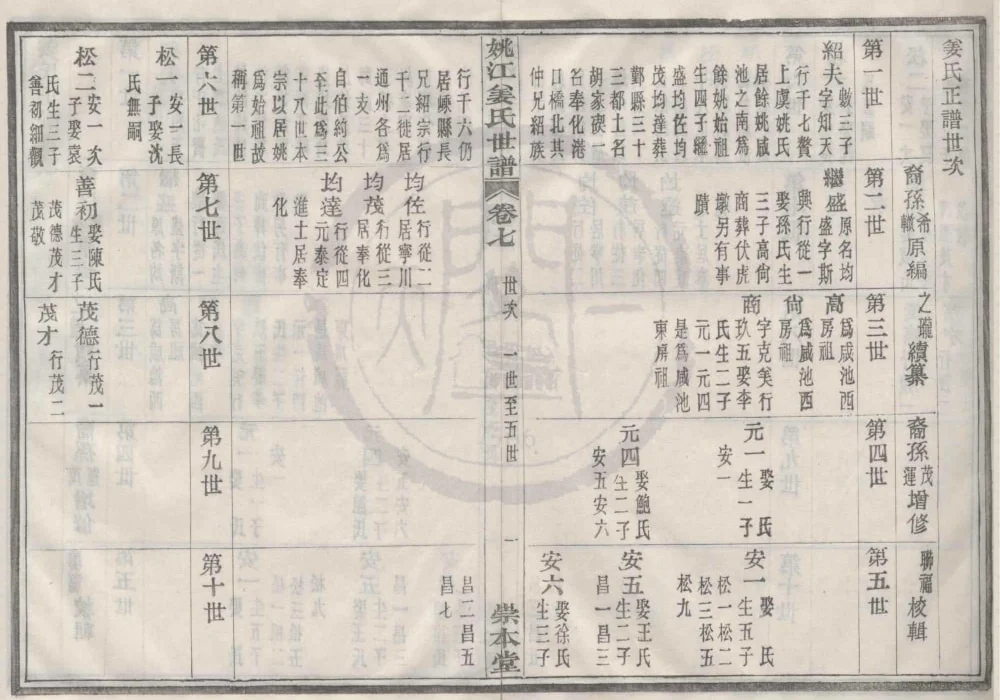 姜氏正譜世次
裔孫希轍原編
之瓏續纂
裔孫茂運增修
聯福校輯
第一世
紹夫
敏三子
字知天
行千七贅
上虞姚氏
居餘姚咸
池之南為
餘姚始祖
生四子繼
盛均佐均
茂均達葬
鄞縣三十
三都土名
胡家碶一
名奉化港
口橋北其
仲兄紹族
行千六仍
居嵊縣長
兄紹宗行
千二徙居
通州各為
一支
自伯約公
至此為三
十八世本
宗以居姚
為始祖故
稱第一世
第二世
繼盛
原名均
盛字斯
興行從一
娶孫氏生
三子高尙
商葬伏虎
墩另有事
蹟
均佐
行從二
居寧川
均茂
行從三
居奉化
均達
行從四
元泰定
進士居奉
化
第三世
高
爲咸池西
房祖
尙
爲咸池西
房祖
商
字克美行
玖五娶李
氏生二子
元一元四
是爲咸池
東房祖
第四世
元一
娶 氏
生一子
安一
元四
娶鮑氏
生二子
安五安六
第五世
安一
娶 氏
生五子
松一松二
松三松五
松九
安五
娶王氏
生二子
昌一昌三
安六
娶徐氏
生三子
昌二昌五
昌七
姚江姜氏世譜
卷七
世次
一世至五世
一
崇本堂
第六世
松一
安一長
子娶沈
氏無嗣
松二
安一次
子娶袁
氏生三子
善初細觀
第七世
善初
娶陳氏
生三子
茂德茂才
茂敬
第八世
茂德
行茂一
茂才
行茂二
第九世
第十世